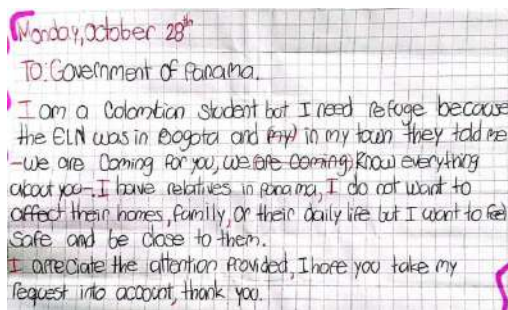 Monday, October 28th
TO: Government of Panama.
I am a Colombian student but I need refuge because
the ELN was in Bogota and my) in my town they told me
-we are Coming for you, we are coming, Know everything
about you-. I have relatives in panama, I do not want to
affect their homes, family, or their daily life but I want to feel
safe and be close to them.
I apreciate the attention Provided, I hope you take my
request into account, thank you.